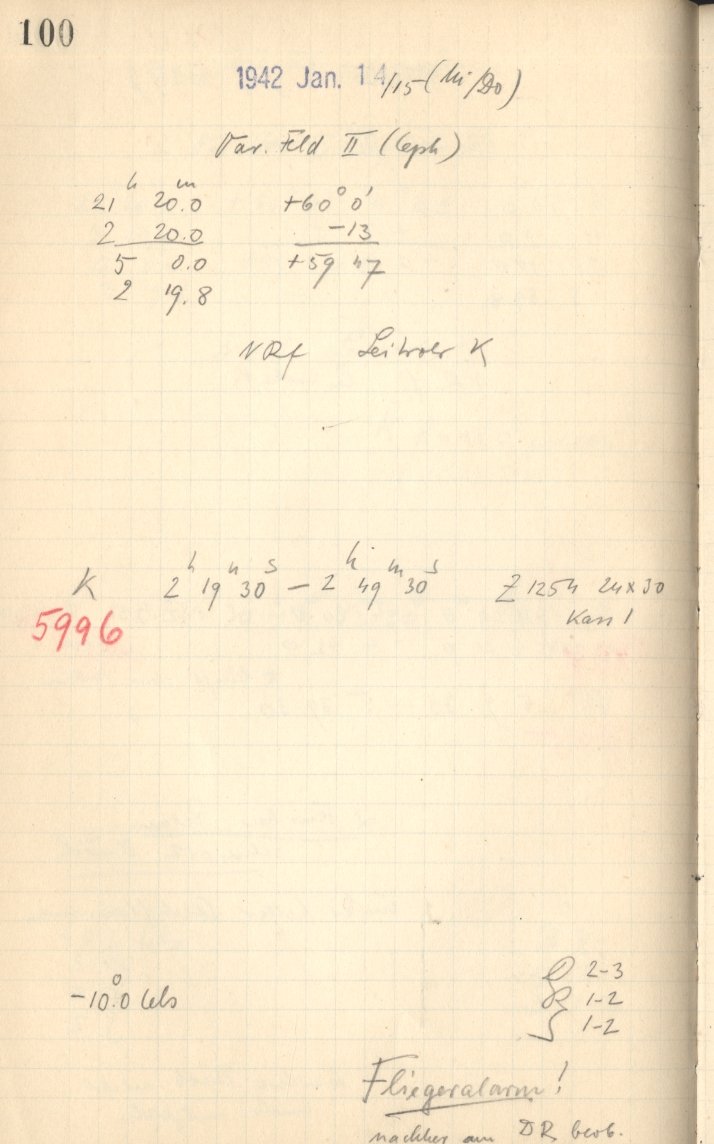 100
1942 Jan. 14/15 (Mi/Do)
Var. Feld II (Ceph)
21 h 20.0 m +60° 0'
2 20.0 -13
5 0.0 +59 47
2 19.8
NRf Leitrohr K
K 2 h 19 m 30 s – 2 h 49 m 30 s Z 1254 24x30
Kass 1
5996
2-3
-10°.0 Cels R 1-2
1-2
Fliegeralarm!
nachher am DR beob.